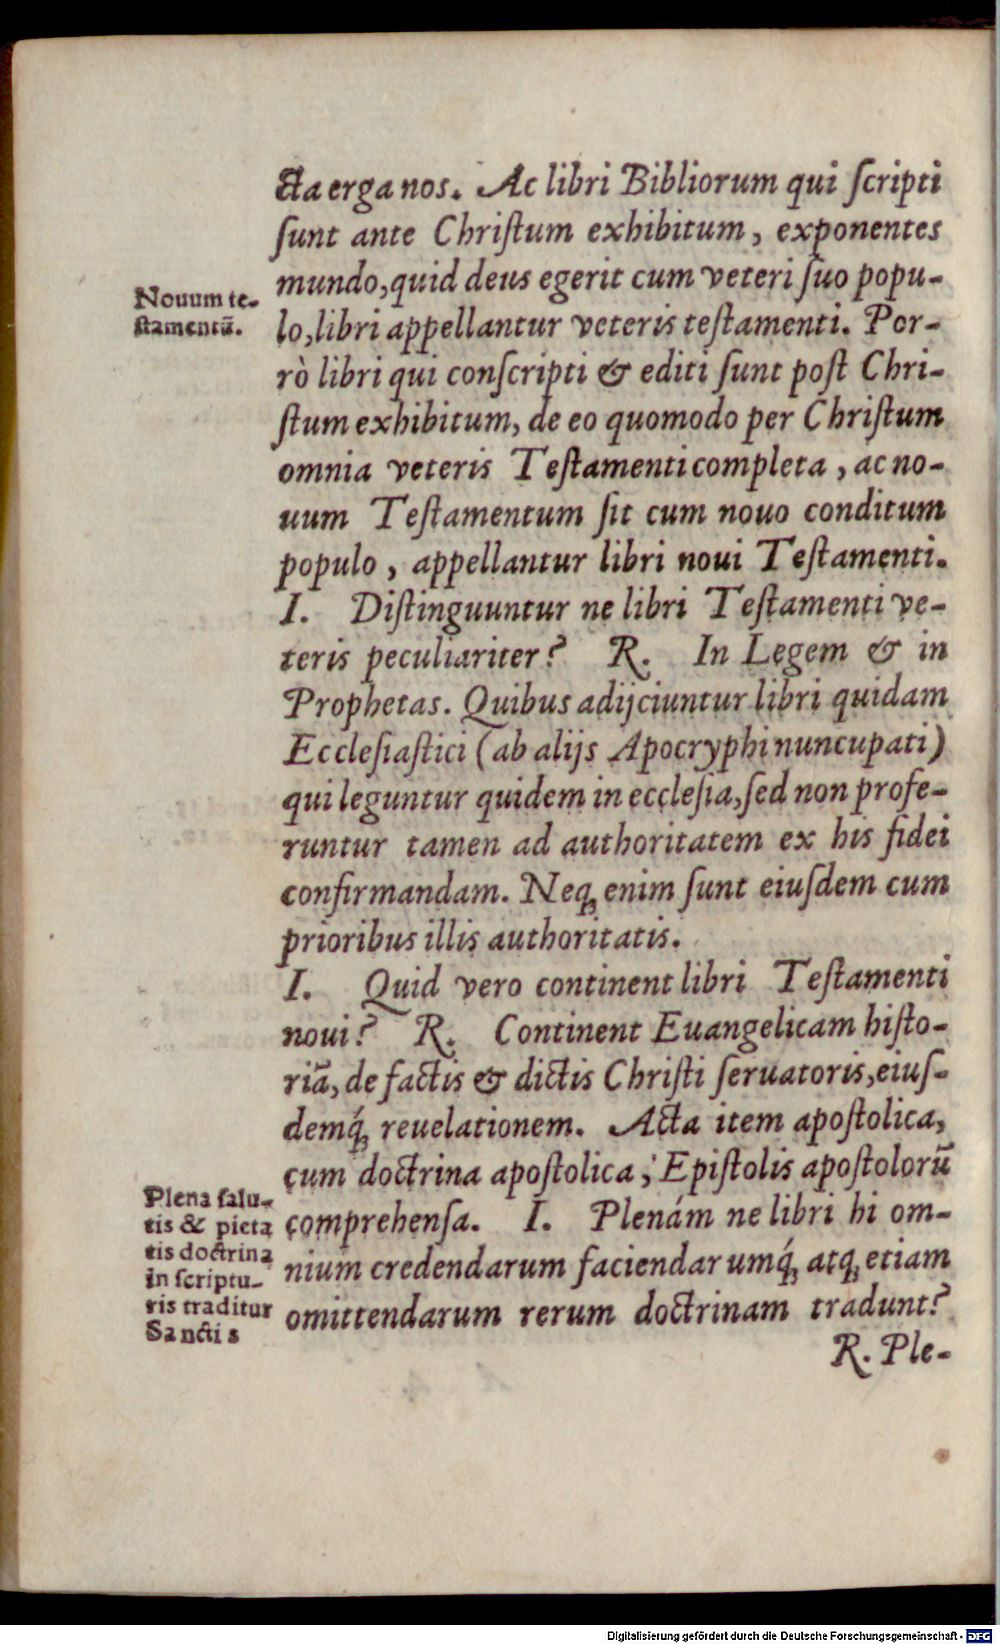 cta erga nos. Ac libri Bibliorum qui ſcripti
ſunt ante Chriſtum exhibitum, exponentes
mundo, quid deus egerit cum veteri ſuo popu-
lo, libri appellantur veteris teſtamenti. Por-
rò libri qui conſcripti & editi ſunt poſt Chri-
ſtum exhibitum, de eo quomodo per Chriſtum
omnia veteris Teſtamenti completa, ac no-
uum Teſtamentum ſit cum nouo conditum
populo, appellantur libri noui Teſtamenti.
I. Diſtinguuntur ne libri Teſtamenti ve-
teris peculiariter? R. In Legem & in
Prophetas. Quibus adijciuntur libri quidam
Eccleſiaſtici (ab alijs Apocryphi nuncupati)
qui leguntur quidem in eccleſia, ſed non profe-
runtur tamen ad authoritatem ex his fidei
confirmandam. Neq; enim ſunt eiuſdem cum
prioribus illis authoritatis.
I. Quid vero continent libri Teſtamenti
noui? R. Continent Euangelicam hiſto-
riā, de factis & dictis Chriſti ſeruatoris, eiuſ-
demq́; reuelationem. Acta item apoſtolica,
cum doctrina apoſtolica, Epiſtolis apoſtolorū
comprehenſa. I. Plenám ne libri hi om-
nium credendarum faciendarumq́; atq; etiam
omittendarum rerum doctrinam tradunt?
R. Ple-
Nouum te-
ſtamentū.
Plena ſalu-
tis & pieta
tis doctrina
in ſcriptu-
ris traditur
Sanctis
Digitalisierung gefördert durch die Deutsche Forschungsgemeinschaft - DFG